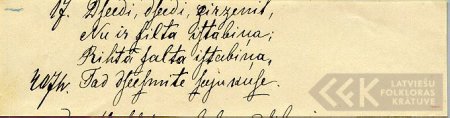 17. Dseedi, dseedi, zirzenit,
Nu ir silta istabiņa;
Kihtà salta istabiņa,
Tad dseesmite sajukuse.
LATVIEŠU
FOLKLORAS
KRĀTUVE